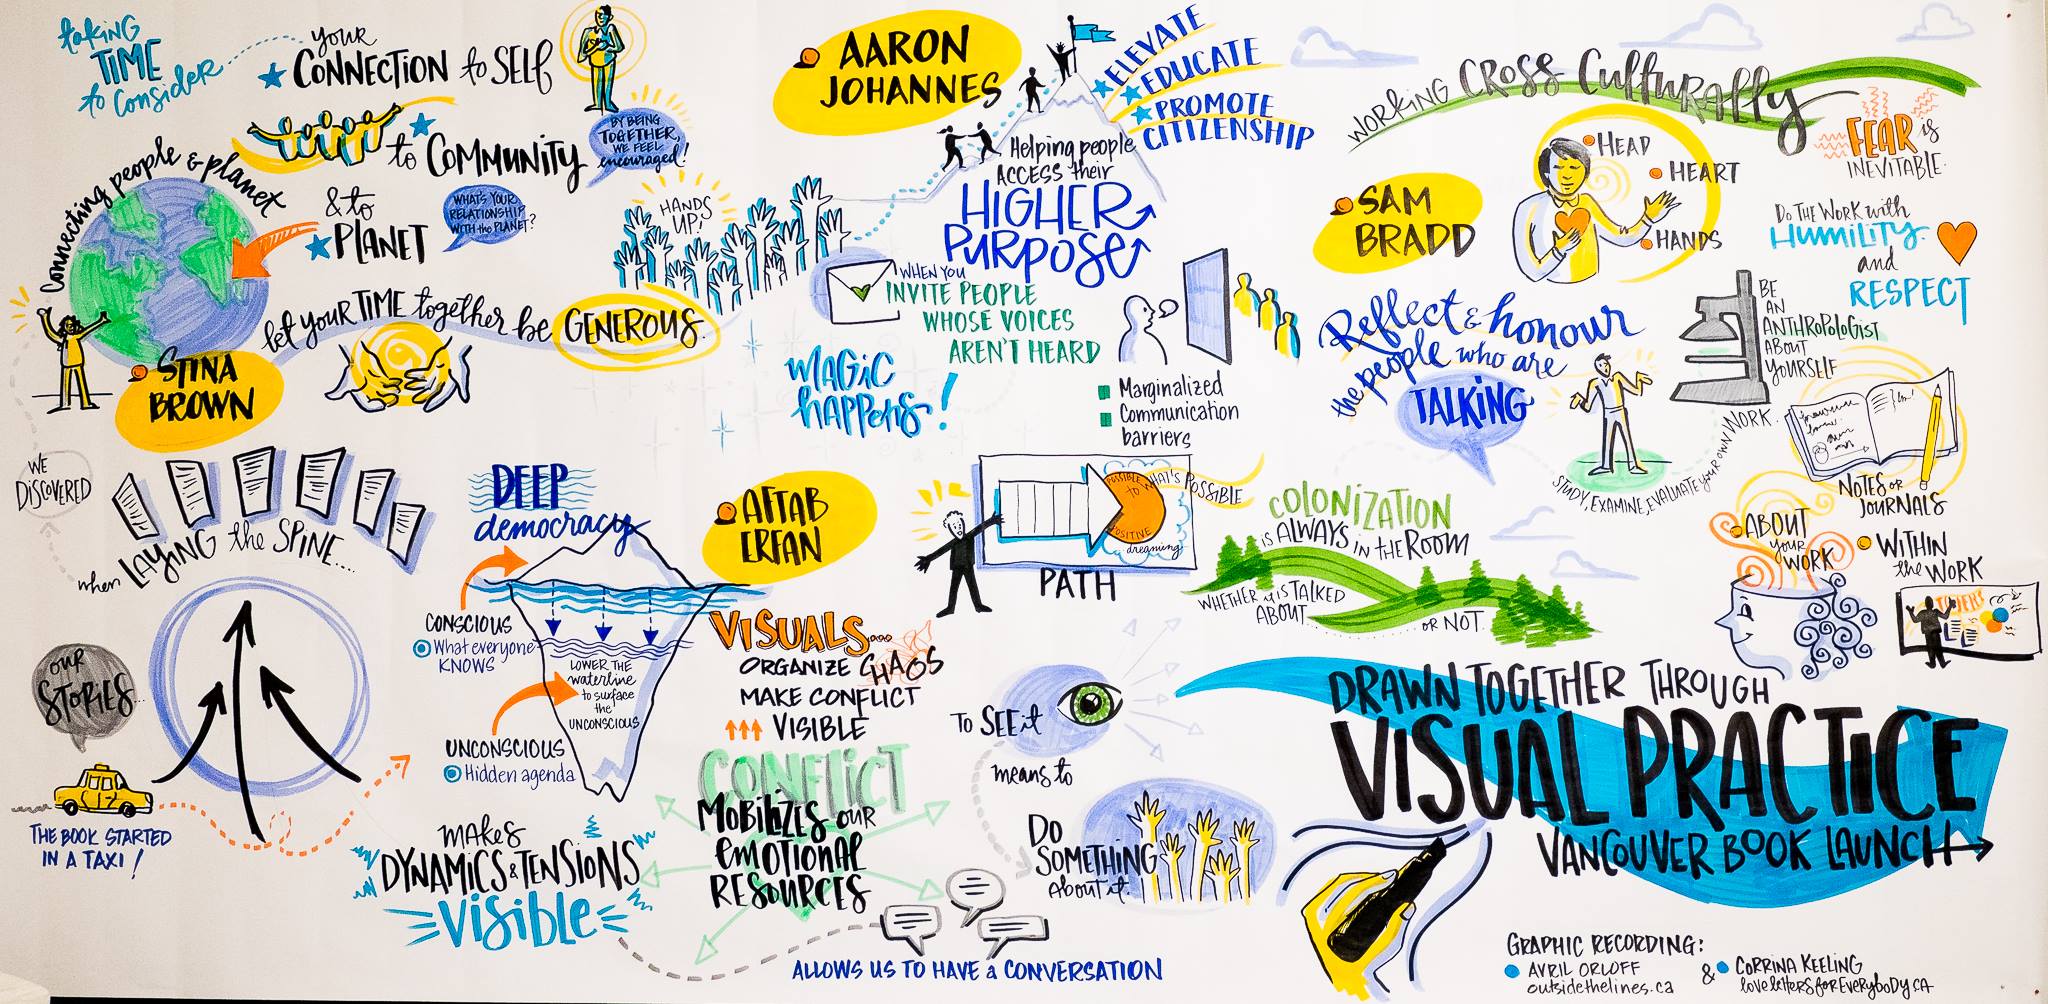 taking
TIME
to consider
YOUR
CONNECTION to SELF
to COMMUNITY
BY BEING
TOGETHER,
WE FEEL
encouraged!
& to
PLANET
WHAT'S YOUR
RELATIONSHIP
WITH the PLANET?
Connecting people & planet
STINA
BROWN
let your TIME together be GENEROUS.
HANDS
UP!
WE
DISCOVERED
when LAYING the SPINE....
OUR
STORIES...
THE BOOK STARTED
IN A TAXI!
AARON
JOHANNES
ELEVATE
EDUCATE
PROMOTE
CITIZENSHIP
Helping people
ACCESS their
HIGHER
PURPOSE
WHEN YOU
INVITE PEOPLE
WHOSE VOICES
AREN'T HEARD
MAGIC
happens!
Marginalized
Communication
barriers
DEEP
democracy
CONSCIOUS
What everyone
KNOWS
UNCONSCIOUS
Hidden agenda
LOWER THE
waterline
to surface
the
UNCONSCIOUS
AFTAB
ERFAN
VISUALS...
ORGANIZE CHAOS
MAKE CONFLICT
VISIBLE
CONFLICT
MOBILIZES OUR
EMOTIONAL
RESOURCES
MAKES
DYNAMICS & TENSIONS
VISIBLE
ALLOWS US TO HAVE a CONVERSATION
POSSIBLE
to WHAT'S POSSIBLE
POSITIVE
dreaming
PATH
TO SEE it
means to
DO
SOMETHING
about it
WORKING CROSS CULTURALLY
SAM
BRADD
HEAD
HEART
HANDS
FEAR is
INEVITABLE.
DO THE WORK with
HUMILITY
and
RESPECT
Reflect & honour
the people who are
TALKING
BE
AN
ANTHROPOLOGIST
ABOUT
YOURSELF
STUDY, EXAMINE, EVALUATE your OWN WORK.
NOTES or
JOURNALS
ABOUT
your
WORK
WITHIN
the WORK
COLONIZATION
IS ALWAYS IN the ROOM
WHETHER it IS TALKED
ABOUT..... ...OR NOT.
DRAWN TOGETHER THROUGH
VISUAL PRACTICE
VANCOUVER BOOK LAUNCH
GRAPHIC RECORDING:
AVRIL ORLOFF
outsidethelines.ca
& CORRINA KEELING
lovelettersforeverybody.ca